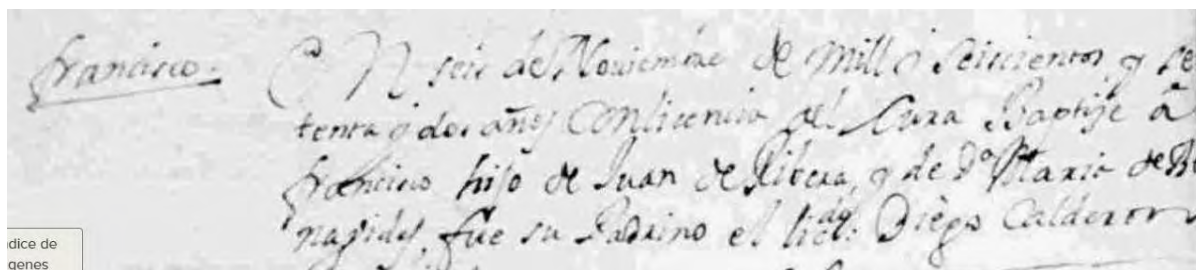 francisco.
EN seis de Nouiembre de Mill i seiscientos y se
tenta y dos años Con licencia del Cura Baptise â
francisco hijo de Juan de Ribera, y de Dª Maria de
nauides, fue su Padrino el licdo. Diego Calderon
ndice de
genes